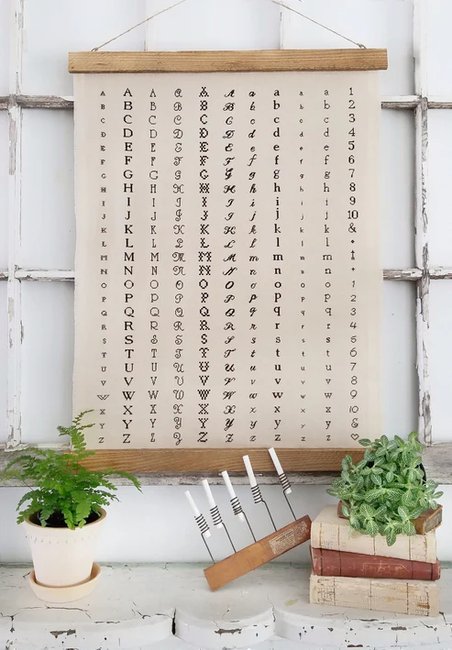 A A A A A A a a a a 1
B B B B B B b b b b 2
C C C C C C c c c c 3
D D D D D D d d d d 4
E E E E E E e e e e 5
F F F F F F f f f f 6
G G G G G G g g g g 7
H H H H H H h h h h 8
I I I I I I i i i i 9
J J J J J J j j j j 10
K K K K K K k k k k &
L L L L L L l l l l
M M M M M M m m m m
N N N N N N n n n n
O O O O O O o o o o 1
P P P P P P p p p p 2
Q Q Q Q Q Q q q q q 3
R R R R R R r r r r 4
S S S S S S s s s s 5
T T T T T T t t t t 6
U U U U U U u u u u 7
V V V V V V v v v v 8
W W W W W W w w w w 9
X X X X X X x x x x 10
Y Y Y Y Y Y y y y y &
Z Z Z Z Z Z z z z z ♡